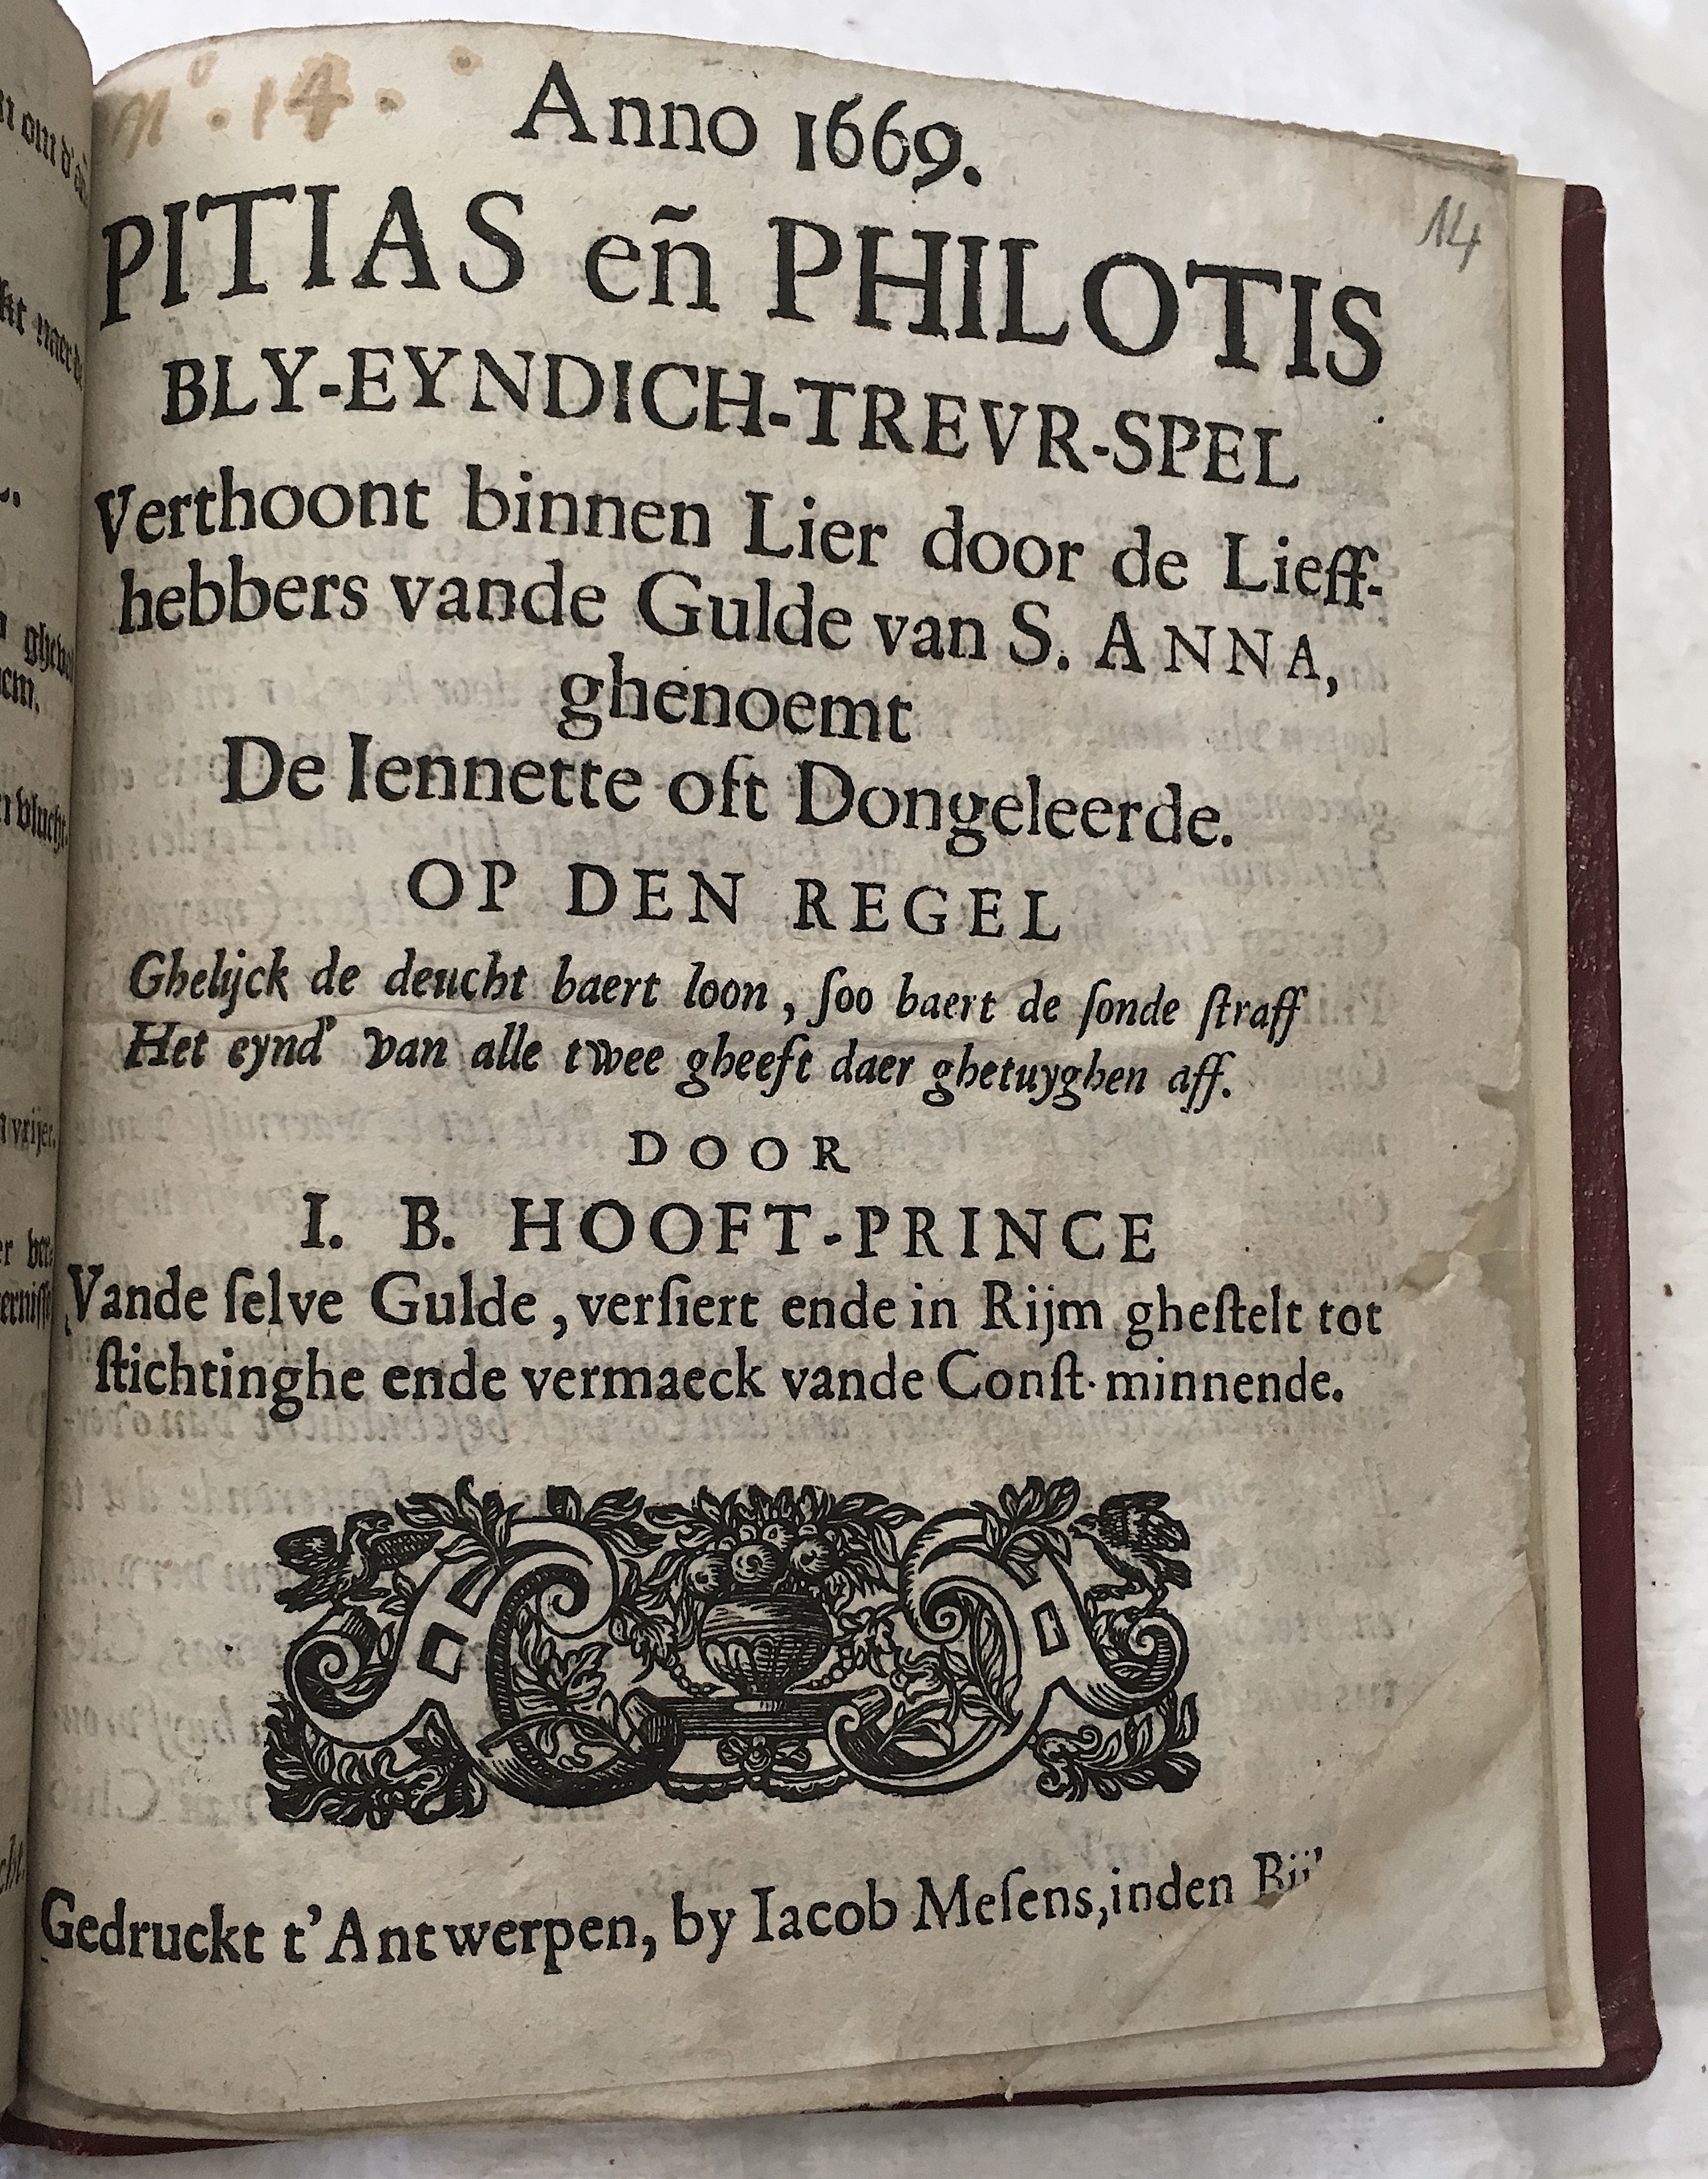 N°. 14.
Anno 1669.
14
PITIAS eñ PHILOTIS
BLY-EYNDICH-TREVR-SPEL
Verthoont binnen Lier door de Lieff-
hebbers vande Gulde van S. ANNA,
ghenoemt
De Iennette oft Dongeleerde.
OP DEN REGEL
Ghelijck de deucht baert loon, ſoo baert de ſonde ſtraff
Het eynd' van alle twee gheeft daer ghetuyghen aff.
DOOR
I. B. HOOFT-PRINCE
Vande ſelve Gulde, verſiert ende in Rijm gheſtelt tot
ſtichtinghe ende vermaeck vande Conſt-minnende.
Gedruckt t'Antwerpen, by Iacob Meſens, inden